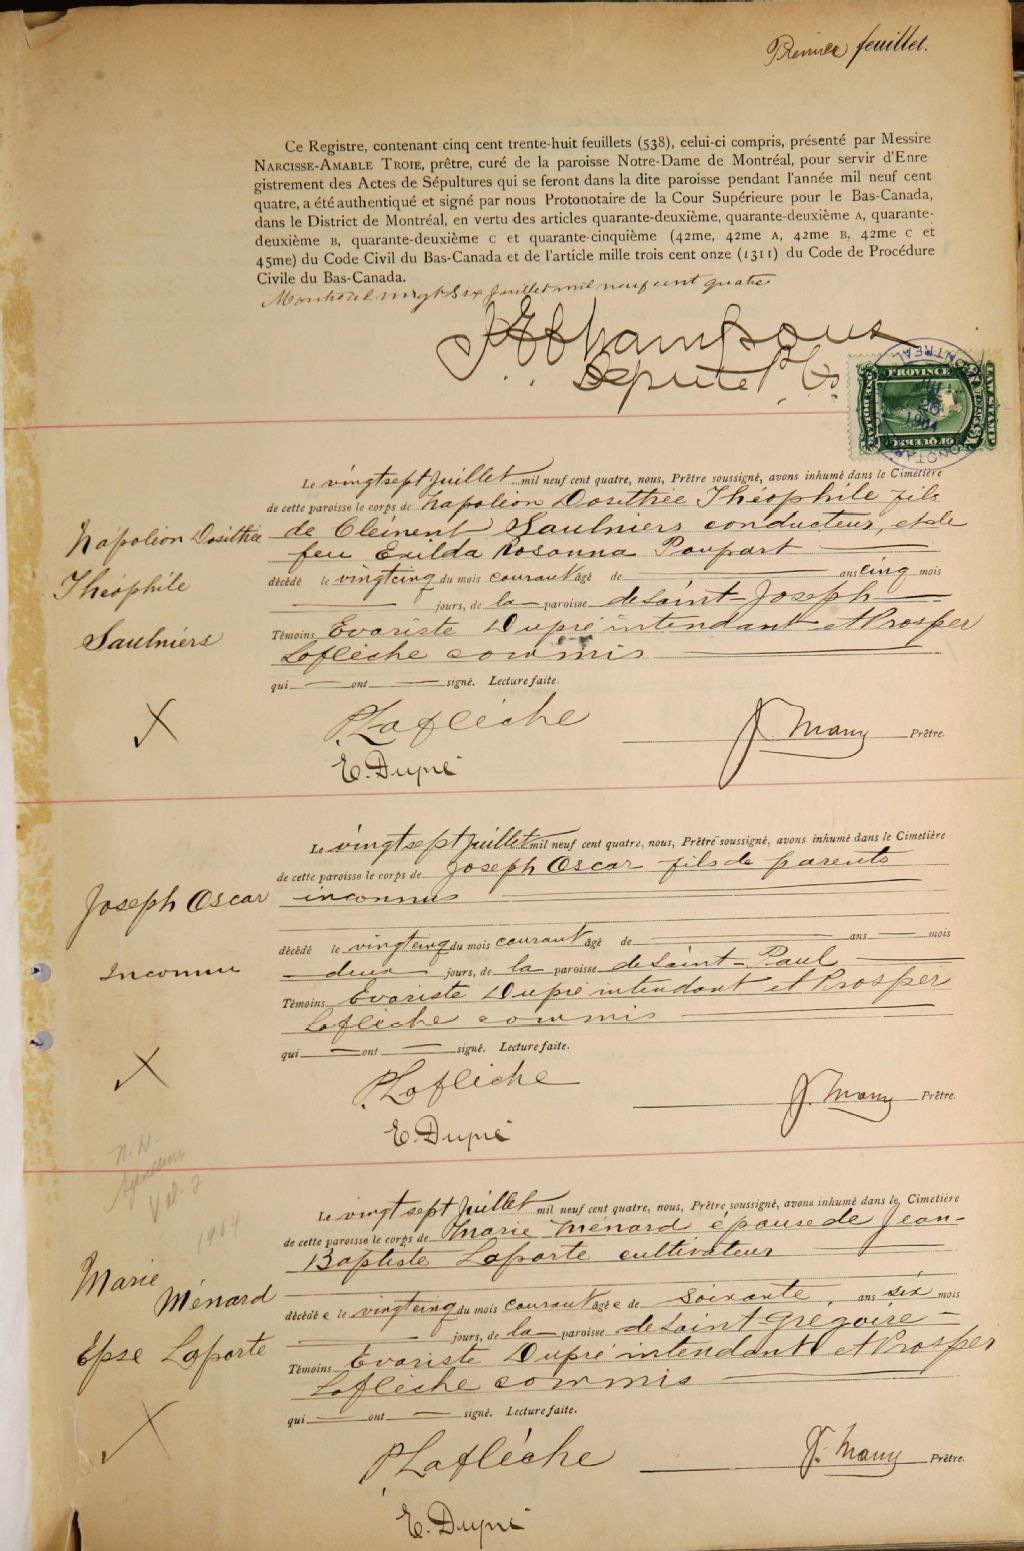 Premier feuillet.
Ce Registre, contenant cinq cent trente-huit feuillets (538), celui-ci compris, présenté par Messire
NARCISSE-AMABLE TROIE, prêtre, curé de la paroisse Notre-Dame de Montréal, pour servir d'Enre
gistrement des Actes de Sépultures qui se feront dans la dite paroisse pendant l'année mil neuf cent
quatre, a été authentiqué et signé par nous Protonotaire de la Cour Supérieure pour le Bas-Canada,
dans le District de Montréal, en vertu des articles quarante-deuxième, quarante-deuxième A, quarante-
deuxième B, quarante-deuxième C et quarante-cinquième (42me, 42me A, 42me B, 42me C et
45me) du Code Civil du Bas-Canada et de l'article mille trois cent onze (1311) du Code de Procédure
Civile du Bas-Canada.
Montréal vingt six juillet mil neuf cent quatre
Député
PROVINCE
OF QUEBEC
LAW STAMP
MONTREAL
1904
Le vingt sept Juillet mil neuf cent quatre, nous, Prêtre soussigné, avons inhumé dans le Cimetière
de cette paroisse le corps de Napoléon Dosithée Théophile fils
de Clément Saulniers conducteur, et de
feu Exilda Rosanna Poupart
Napoléon Dosithée
Théophile
Saulniers
décédé le vingt cinq du mois courant âgé de ans cinq mois
jours, de la paroisse de Saint-Joseph
Témoins Evariste Dupré intendant et Prosper
Laflèche commis
qui ont signé. Lecture faite.
P. Laflèche
J. Many Prêtre.
E. Dupré
Le vingt sept Juillet mil neuf cent quatre, nous, Prêtre soussigné, avons inhumé dans le Cimetière
de cette paroisse le corps de Joseph Oscar fils de parents
inconnus
Joseph Oscar
Inconnu
décédé le vingt cinq du mois courant âgé de ans mois
deux jours, de la paroisse de Saint-Paul
Témoins Evariste Dupré intendant et Prosper
Laflèche commis
qui ont signé. Lecture faite.
P. Laflèche
J. Many Prêtre.
E. Dupré
N.D.
Vol. 2
1904
Le vingt sept Juillet mil neuf cent quatre, nous, Prêtre soussigné, avons inhumé dans le Cimetière
de cette paroisse le corps de Marie Ménard épouse de Jean-
Baptiste Laporte cultivateur
Marie
Ménard
Epse Laporte
décédée le vingt cinq du mois courant âgée de soixante ans six mois
jours, de la paroisse de Saint Grégoire
Témoins Evariste Dupré intendant et Prosper
Laflèche commis
qui ont signé. Lecture faite.
P Laflèche
J. Many Prêtre.
E. Dupré